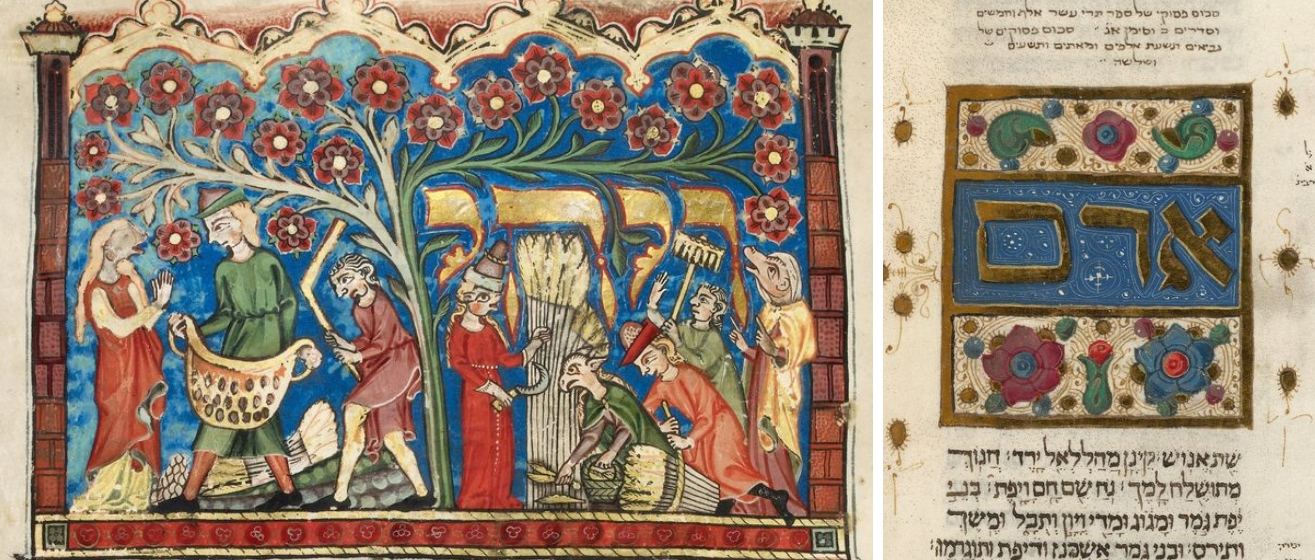 ויהי
סכום פסוקי של ספר תרי עשר אלף וחמשים
וסדרים כ וסימן אג סכום פסוקים של
נביאים תשעת אלפים ומאתים ותשעים
ושלשה
אדם
שֵׁת אֱנוֹשׁ׃ קֵינָן מַהֲלַלְאֵל יָרֶד׃ חֲנוֹךְ
מְתוּשֶׁלַח לָמֶךְ׃ נֹחַ שֵׁם חָם וָיָפֶת׃ בְּנֵי
יֶפֶת גֹּמֶר וּמָגוֹג וּמָדַי וְיָוָן וְתֻבָל וּמֶשֶׁךְ
וְתִירָס׃ וּבְנֵי גֹּמֶר אַשְׁכְּנַז וְדִיפַת וְתוֹגַרְמָה׃